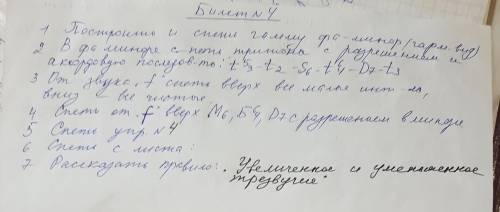 Билет №4
1 Построить и спеть гамму фа-минор (гарм. вид)
2 В фа миноре спеть тритоны с разрешением и
аккордовую последов-ть: t53-t2-S6-t64-D7-t3
3 От звука f спеть вверх все малые инт-лы,
вниз все чистые
4 Спеть от f вверх М6, Б64, D7 с разрешением в миноре
5 Спеть упр. №4
6 Спеть с листа:
7 Рассказать правило: "Увеличенное и уменьшенное
трезвучие"